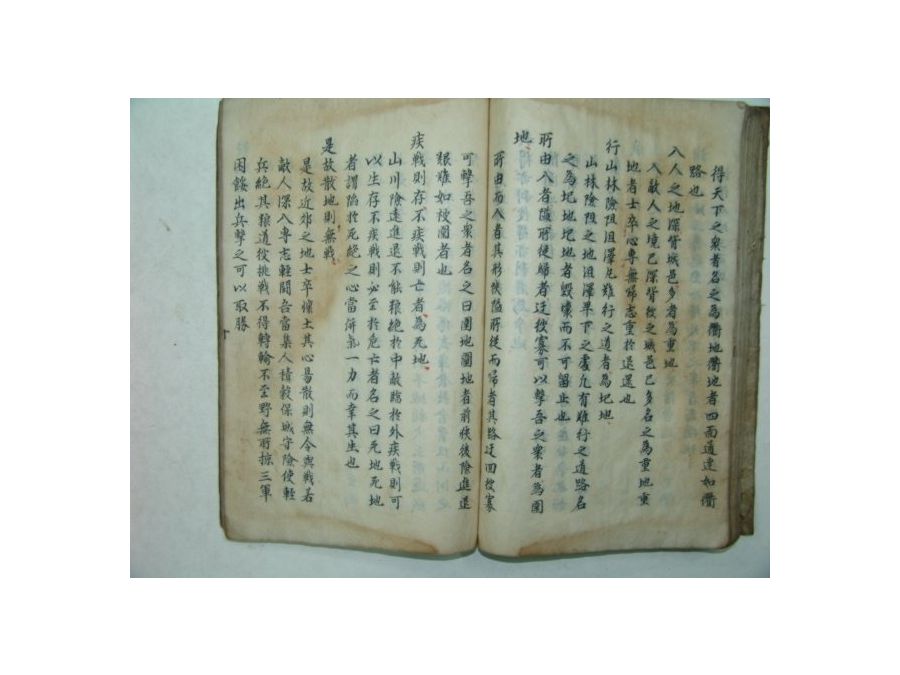 得天下之衆者名之為衢地衢地者四而道達如衢
路也
入人之地深背城邑多者為重地
入敵人之境已深背彼之城邑已多名之為重地重
地者士卒心專無歸志重於退還也
行山林險阻沮澤凡難行之道者為圮地
山林險阻之地沮澤卑下之處凡有難行之道路名
之為圮地圮地者毀壞而不可留止也
所由入者隘所從歸者迂彼寡可以擊吾之衆者為圍
地
所由而入者其形狹隘所從而歸者其路迂回彼寡
可擊吾之衆者名之曰圍地圍地者前狹後險進退
艱難如被圍者也
疾戰則存不疾戰則亡者為死地
山川險進退不能粮絶於中敵臨於外疾戰則可
以生存不疾戰則必至於危亡者名之曰死地死地
者謂陷於死絶之心當併氣一力而幸其生也
是故散地則無戰
是故近郊之地士卒懷土其心易散則無令與戰若
敵人深入專志輕鬪吾當集人積穀保城守險使輕
兵絶其粮道彼挑戰不得轉輸不至野無所掠三軍
困餒出兵擊之可以取勝